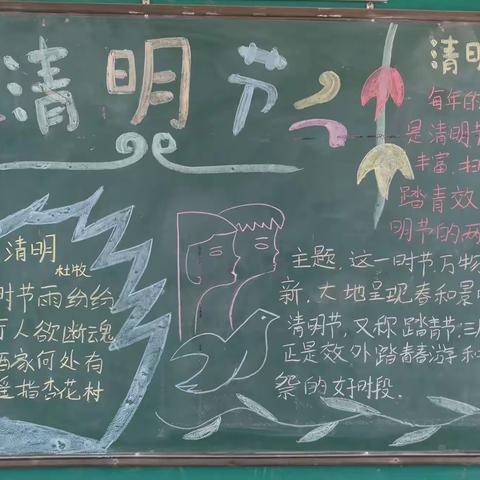 清明节
清明
杜牧
时节雨纷纷
行人欲断魂
酒家何处有
遥指杏花村
主题，这一时节，万物
新，大地呈现春和景
清明节，又称踏青节；三
正是效外踏青春游和
祭的好时段.
清明
每年的
是清明节
丰富，扫
踏青效
明节的两